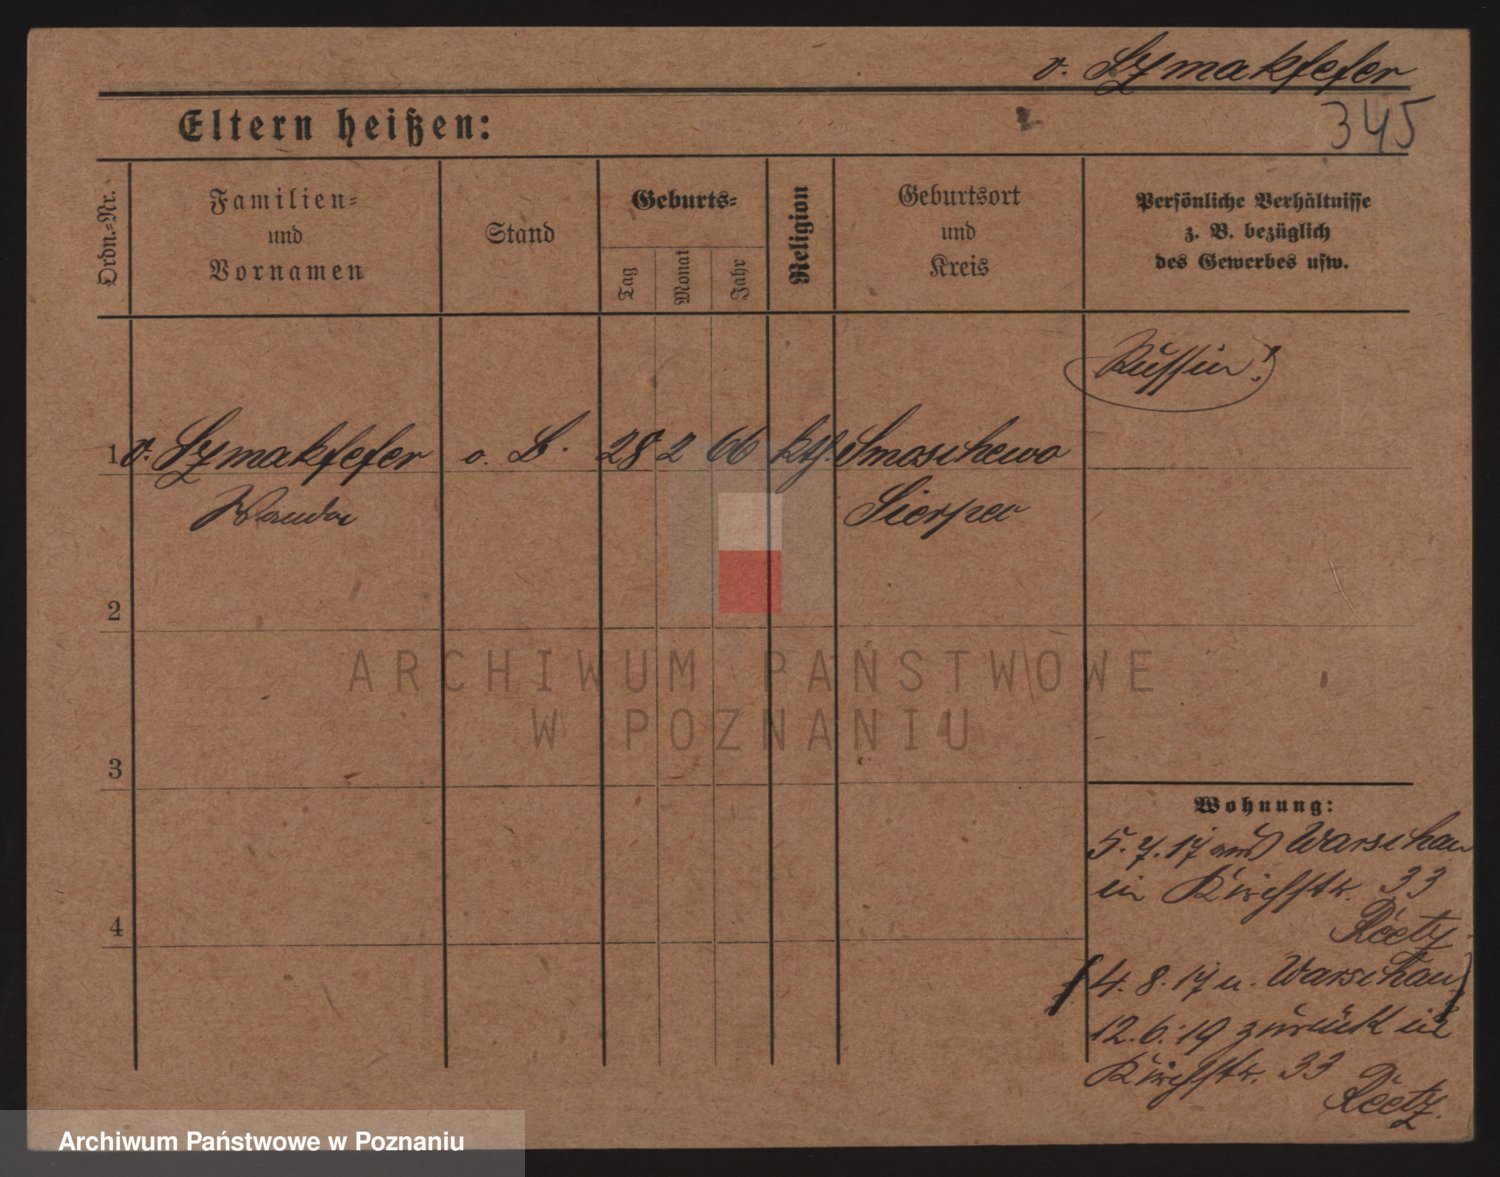 v. Szmakfefer
345
Eltern heißen:
Ordn.-Nr.
Familien-
und
Vornamen
Stand
Geburts-
Tag
Monat
Jahr
Religion
Geburtsort
und
Kreis
Persönliche Verhältnisse
z. B. bezüglich
des Gewerbes usw.
Russin!
1 v. Szmakfefer o. B. 28 2 66 kth. Smoschewo
Wanda Sierpec
2
3
4
Wohnung:
5. 7. 17 aus Warschau
in Kirchstr. 33
Reetz
4. 8. 17 n. Warschau
12. 6. 19 zurück in
Kirchstr. 33
Reetz.
ARCHIWUM PAŃSTWOWE
W POZNANIU
Archiwum Państwowe w Poznaniu